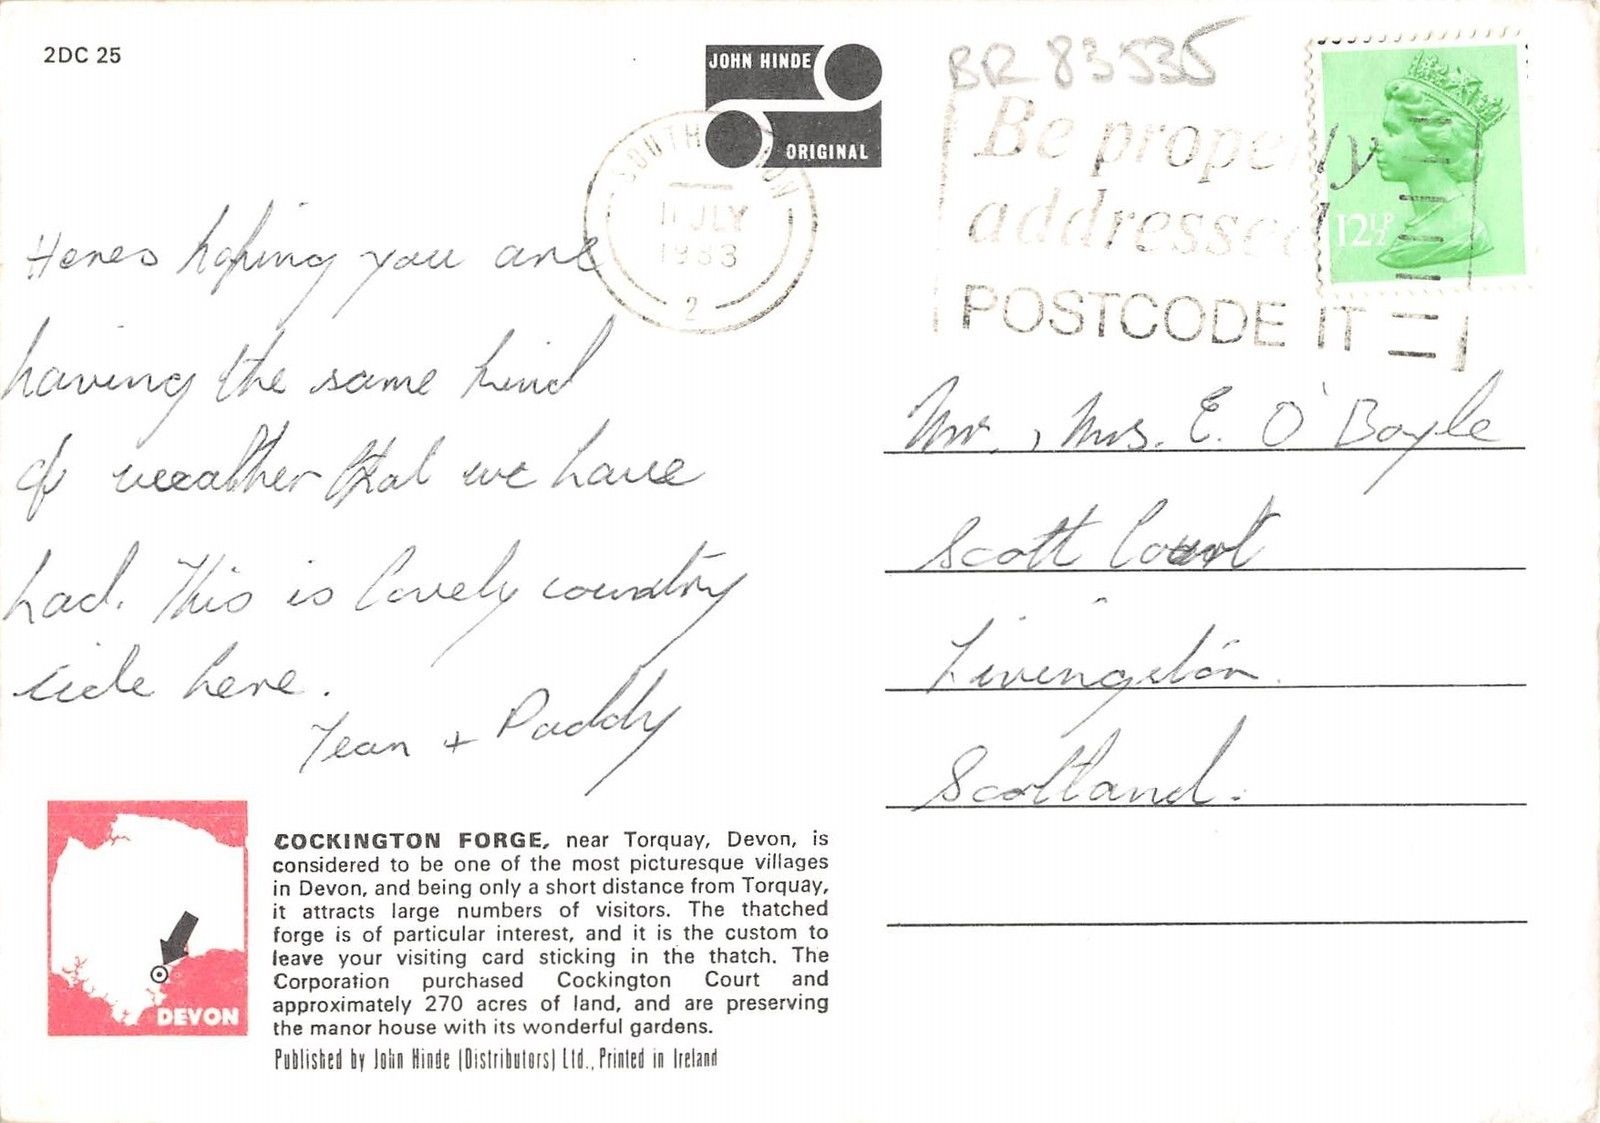 2DC 25
JOHN HINDE
ORIGINAL
BR 83535
SOUTHAMPTON
11 JLY
1983
2
Be properly
addressed
POSTCODE IT
12½P
Heres hoping you are
having the same kind
of weather that we have
had. This is lovely country
side here.
Jean + Paddy
Mr, Mrs. E. O'Boyle
Scott Court
Livingston.
Scotland.
DEVON
COCKINGTON FORGE, near Torquay, Devon, is
considered to be one of the most picturesque villages
in Devon, and being only a short distance from Torquay,
it attracts large numbers of visitors. The thatched
forge is of particular interest, and it is the custom to
leave your visiting card sticking in the thatch. The
Corporation purchased Cockington Court and
approximately 270 acres of land, and are preserving
the manor house with its wonderful gardens.
Published by John Hinde (Distributors) Ltd., Printed in Ireland